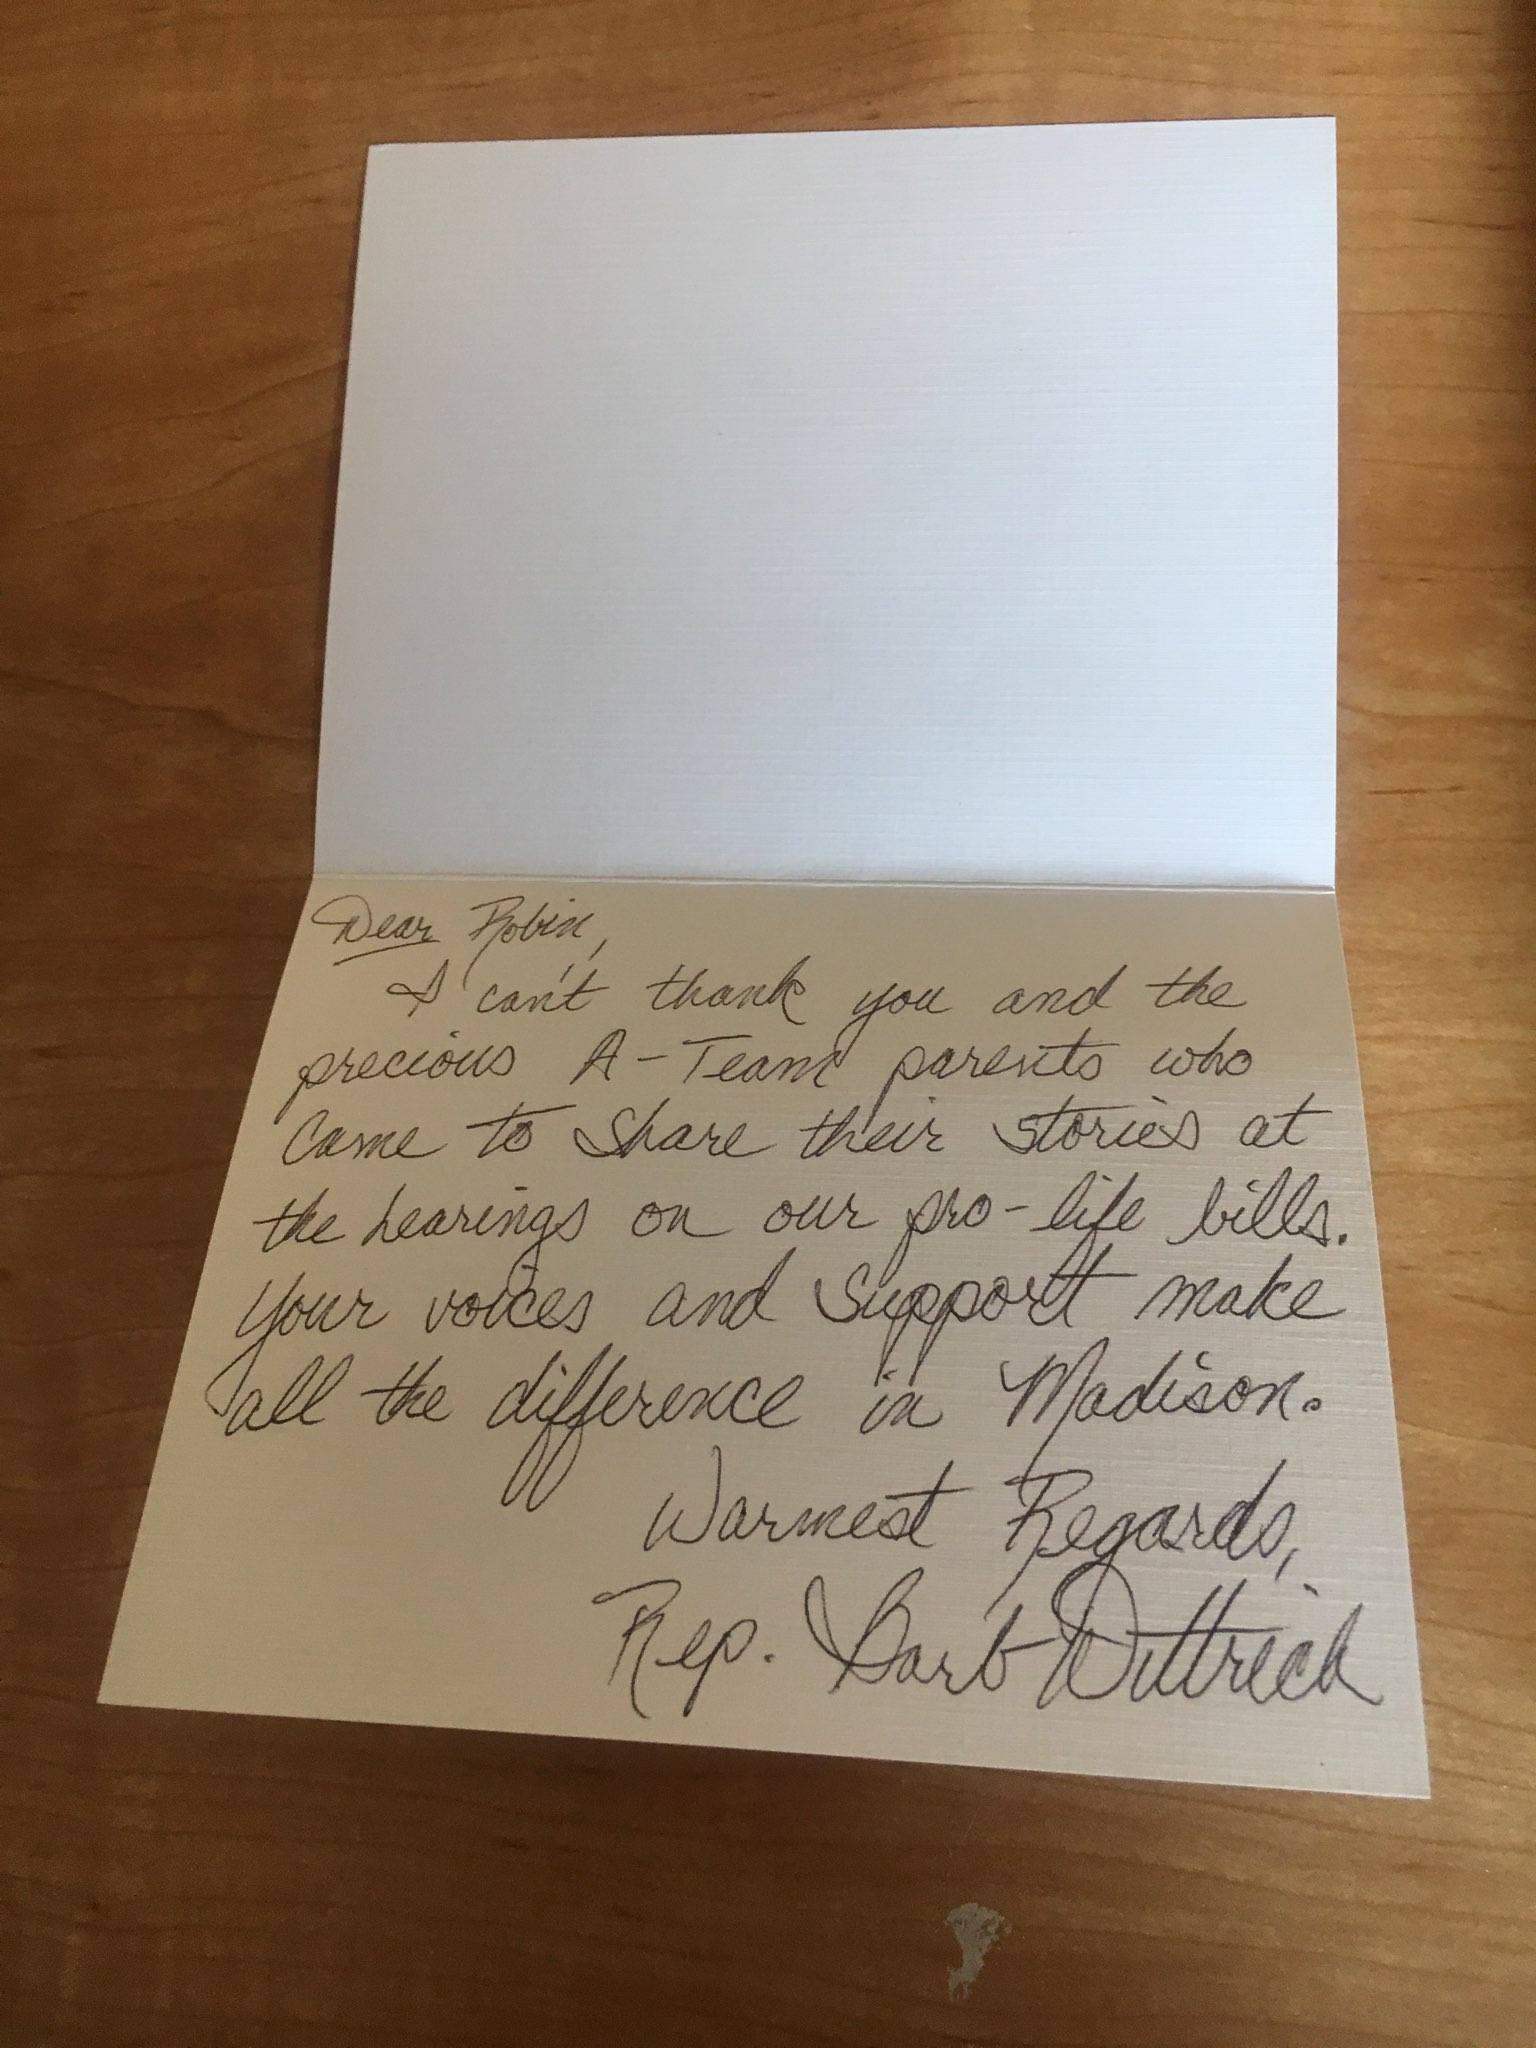 Dear Robin,
I can't thank you and the
precious A-Team parents who
came to share their stories at
the hearings on our pro-life bills.
Your voices and support make
all the difference in Madison.
Warmest Regards,
Rep. Barb Dittrich